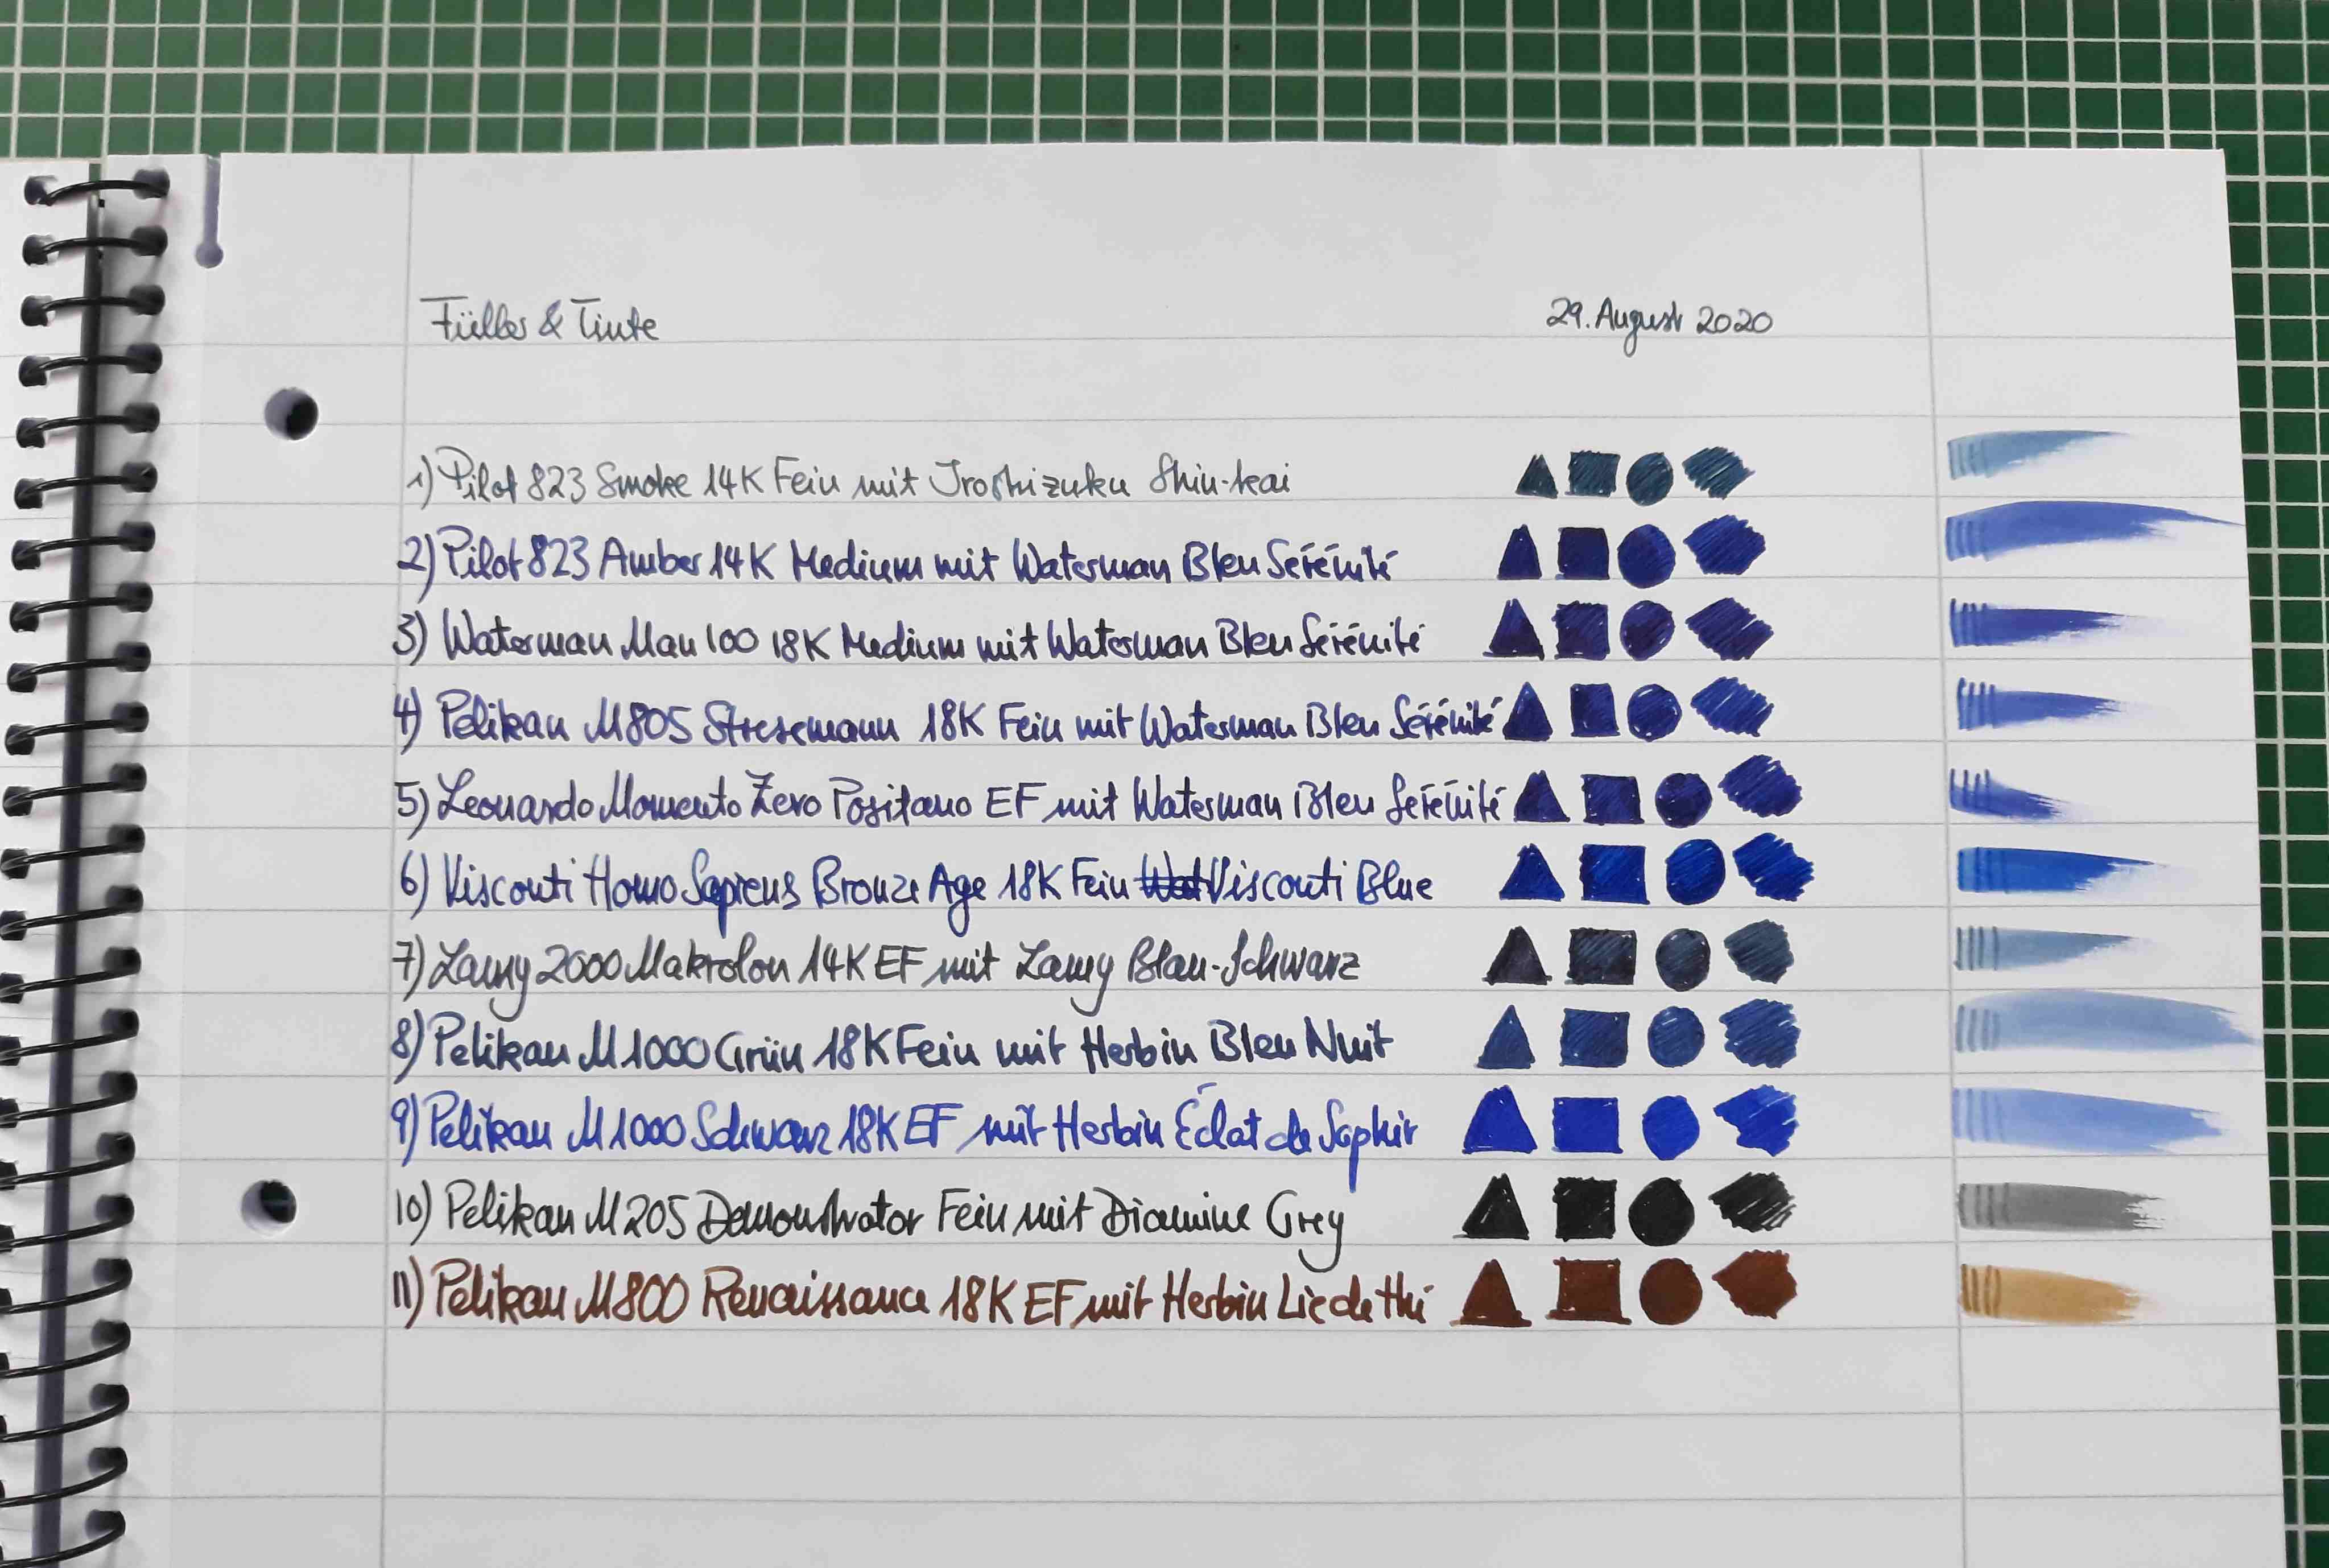 Füller & Tinte
29. August 2020
1) Pilot 823 Smoke 14K Fein mit Iroshizuku Shin-kai
2) Pilot 823 Amber 14K Medium mit Waterman Bleu Sérénité
3) Waterman Man 100 18K Medium mit Waterman Bleu Sérénité
4) Pelikan M805 Stresemann 18K Fein mit Waterman Bleu Sérénité
5) Leonardo Momento Zero Positano EF mit Waterman Bleu Sérénité
6) Visconti Homo Sapiens Bronze Age 18K Fein Wat Visconti Blue
7) Lamy 2000 Makrolon 14K EF mit Lamy Blau-Schwarz
8) Pelikan M1000 Grün 18K Fein mit Herbin Bleu Nuit
9) Pelikan M1000 Schwarz 18K EF mit Herbin Éclat de Saphir
10) Pelikan M205 Demonstrator Fein mit Diamine Grey
11) Pelikan M800 Renaissance 18K EF mit Herbin Lie de Thé